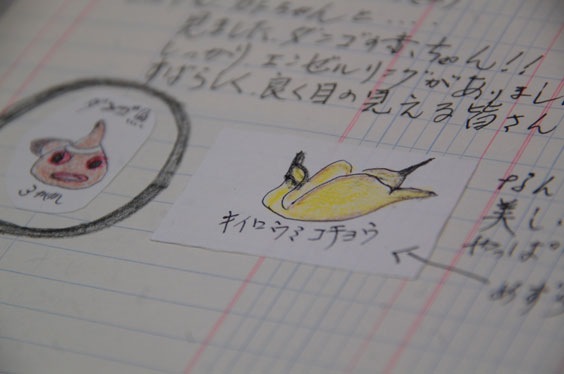 見ました、ダンゴの赤ちゃん!!
しっかり エンゼルリングがありまし
すばらしく、良く目の見える皆さん
3mm
キイロウミコチョウ
なん
美し
やっぱ
めずら